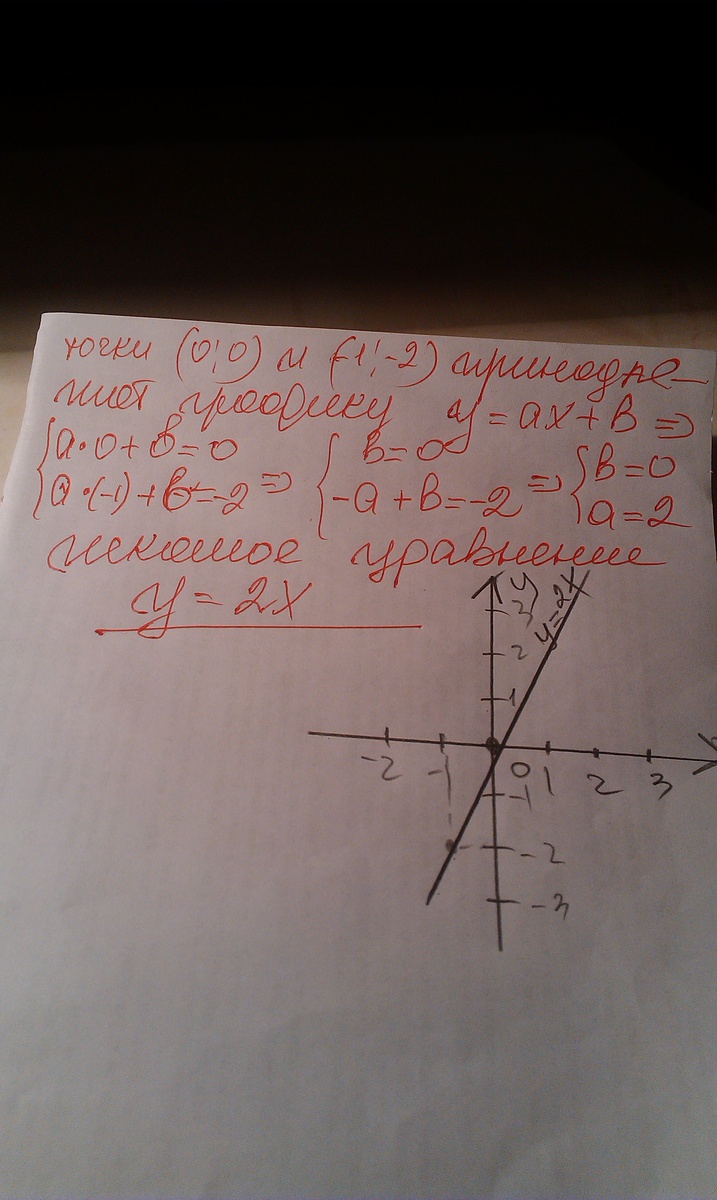 точки (0; 0) и (-1; -2) принадле-
жат графику y = ax + b ⇒
{a·0 + b = 0 {b = 0 {b = 0
{a·(-1) + b = -2 ⇒ {-a + b = -2 ⇒ {a = 2
искомое уравнение
y = 2x
y
3 y=2x
2
1
-2 -1 0 1 2 3
-1
-2
-3